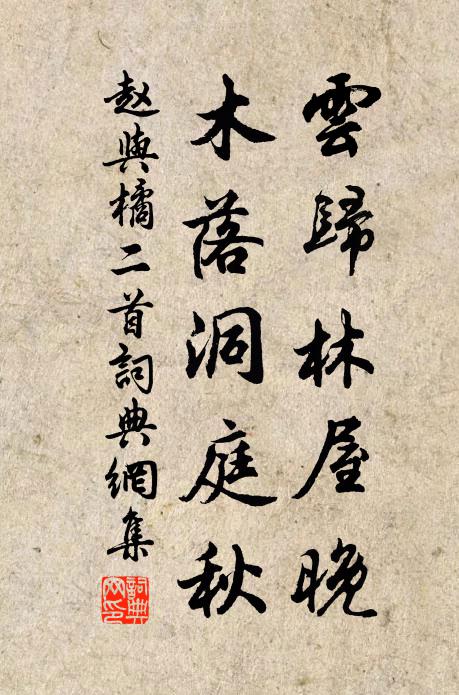 雲歸林屋晚
木落洞庭秋
赵與橘二首詞典網集
詞典